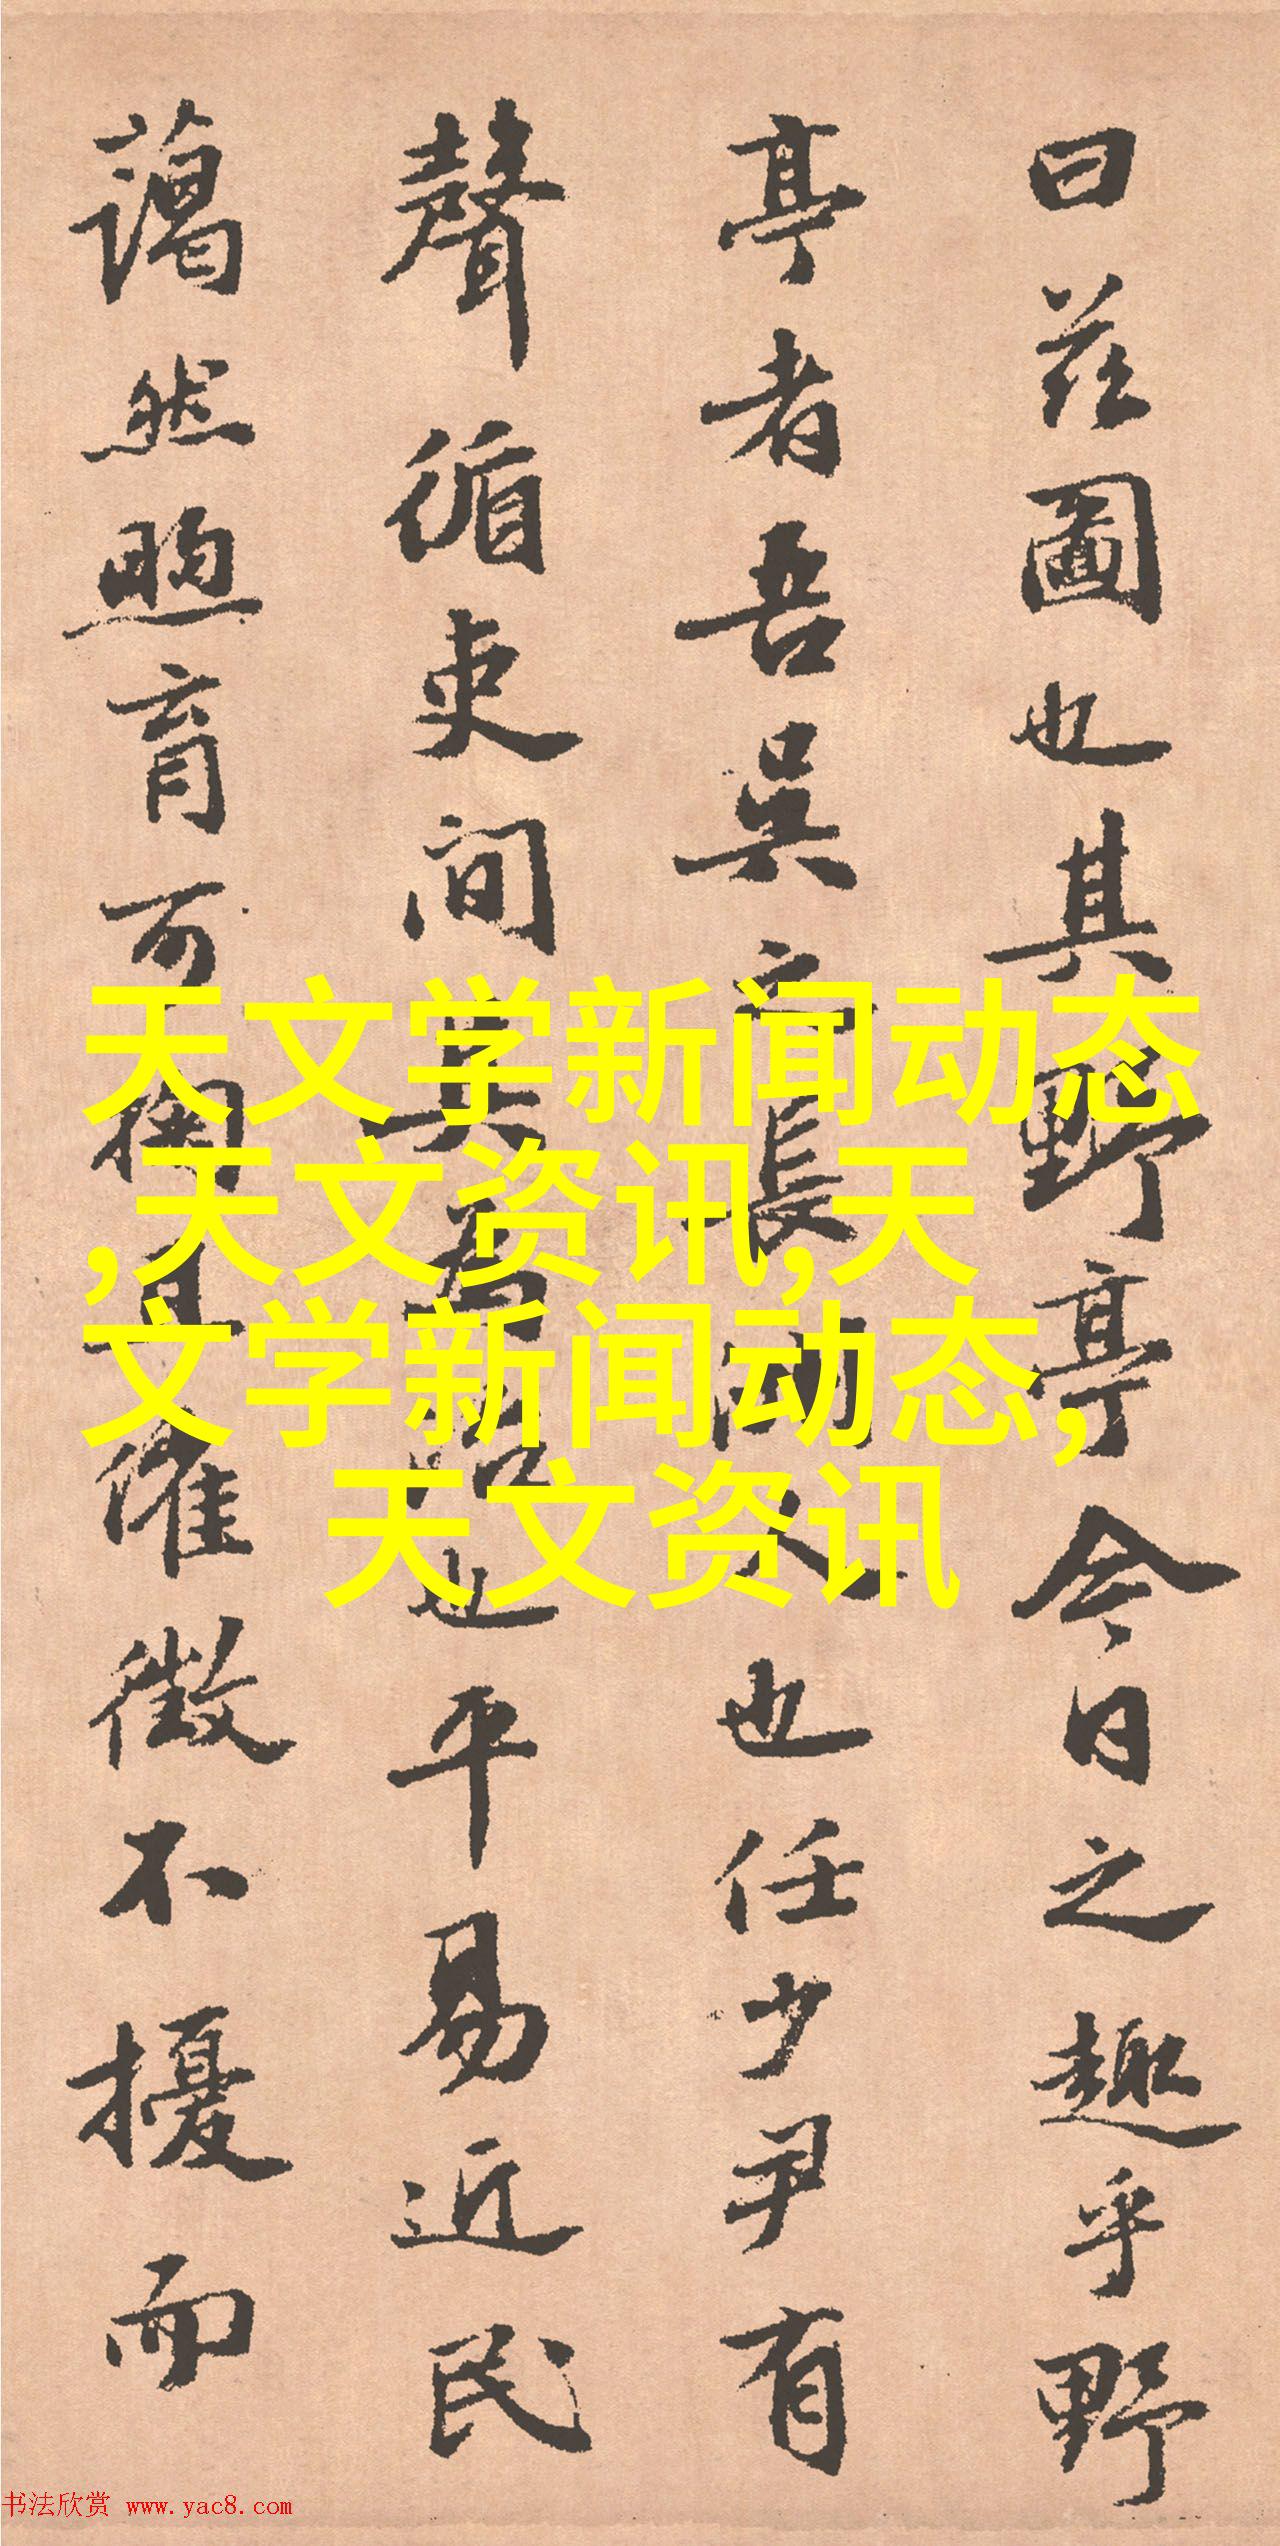 曰茲圖也其野亭今日之趣乎野
亭者吾吳之長洲人也任少尹有
聲循吏间其為治也平易近民
藹然煦育可掬且催徵不擾而
天文学新闻动态
,天文资讯,天
文学新闻动态,
天文资讯
书法欣赏 www.yac8.com